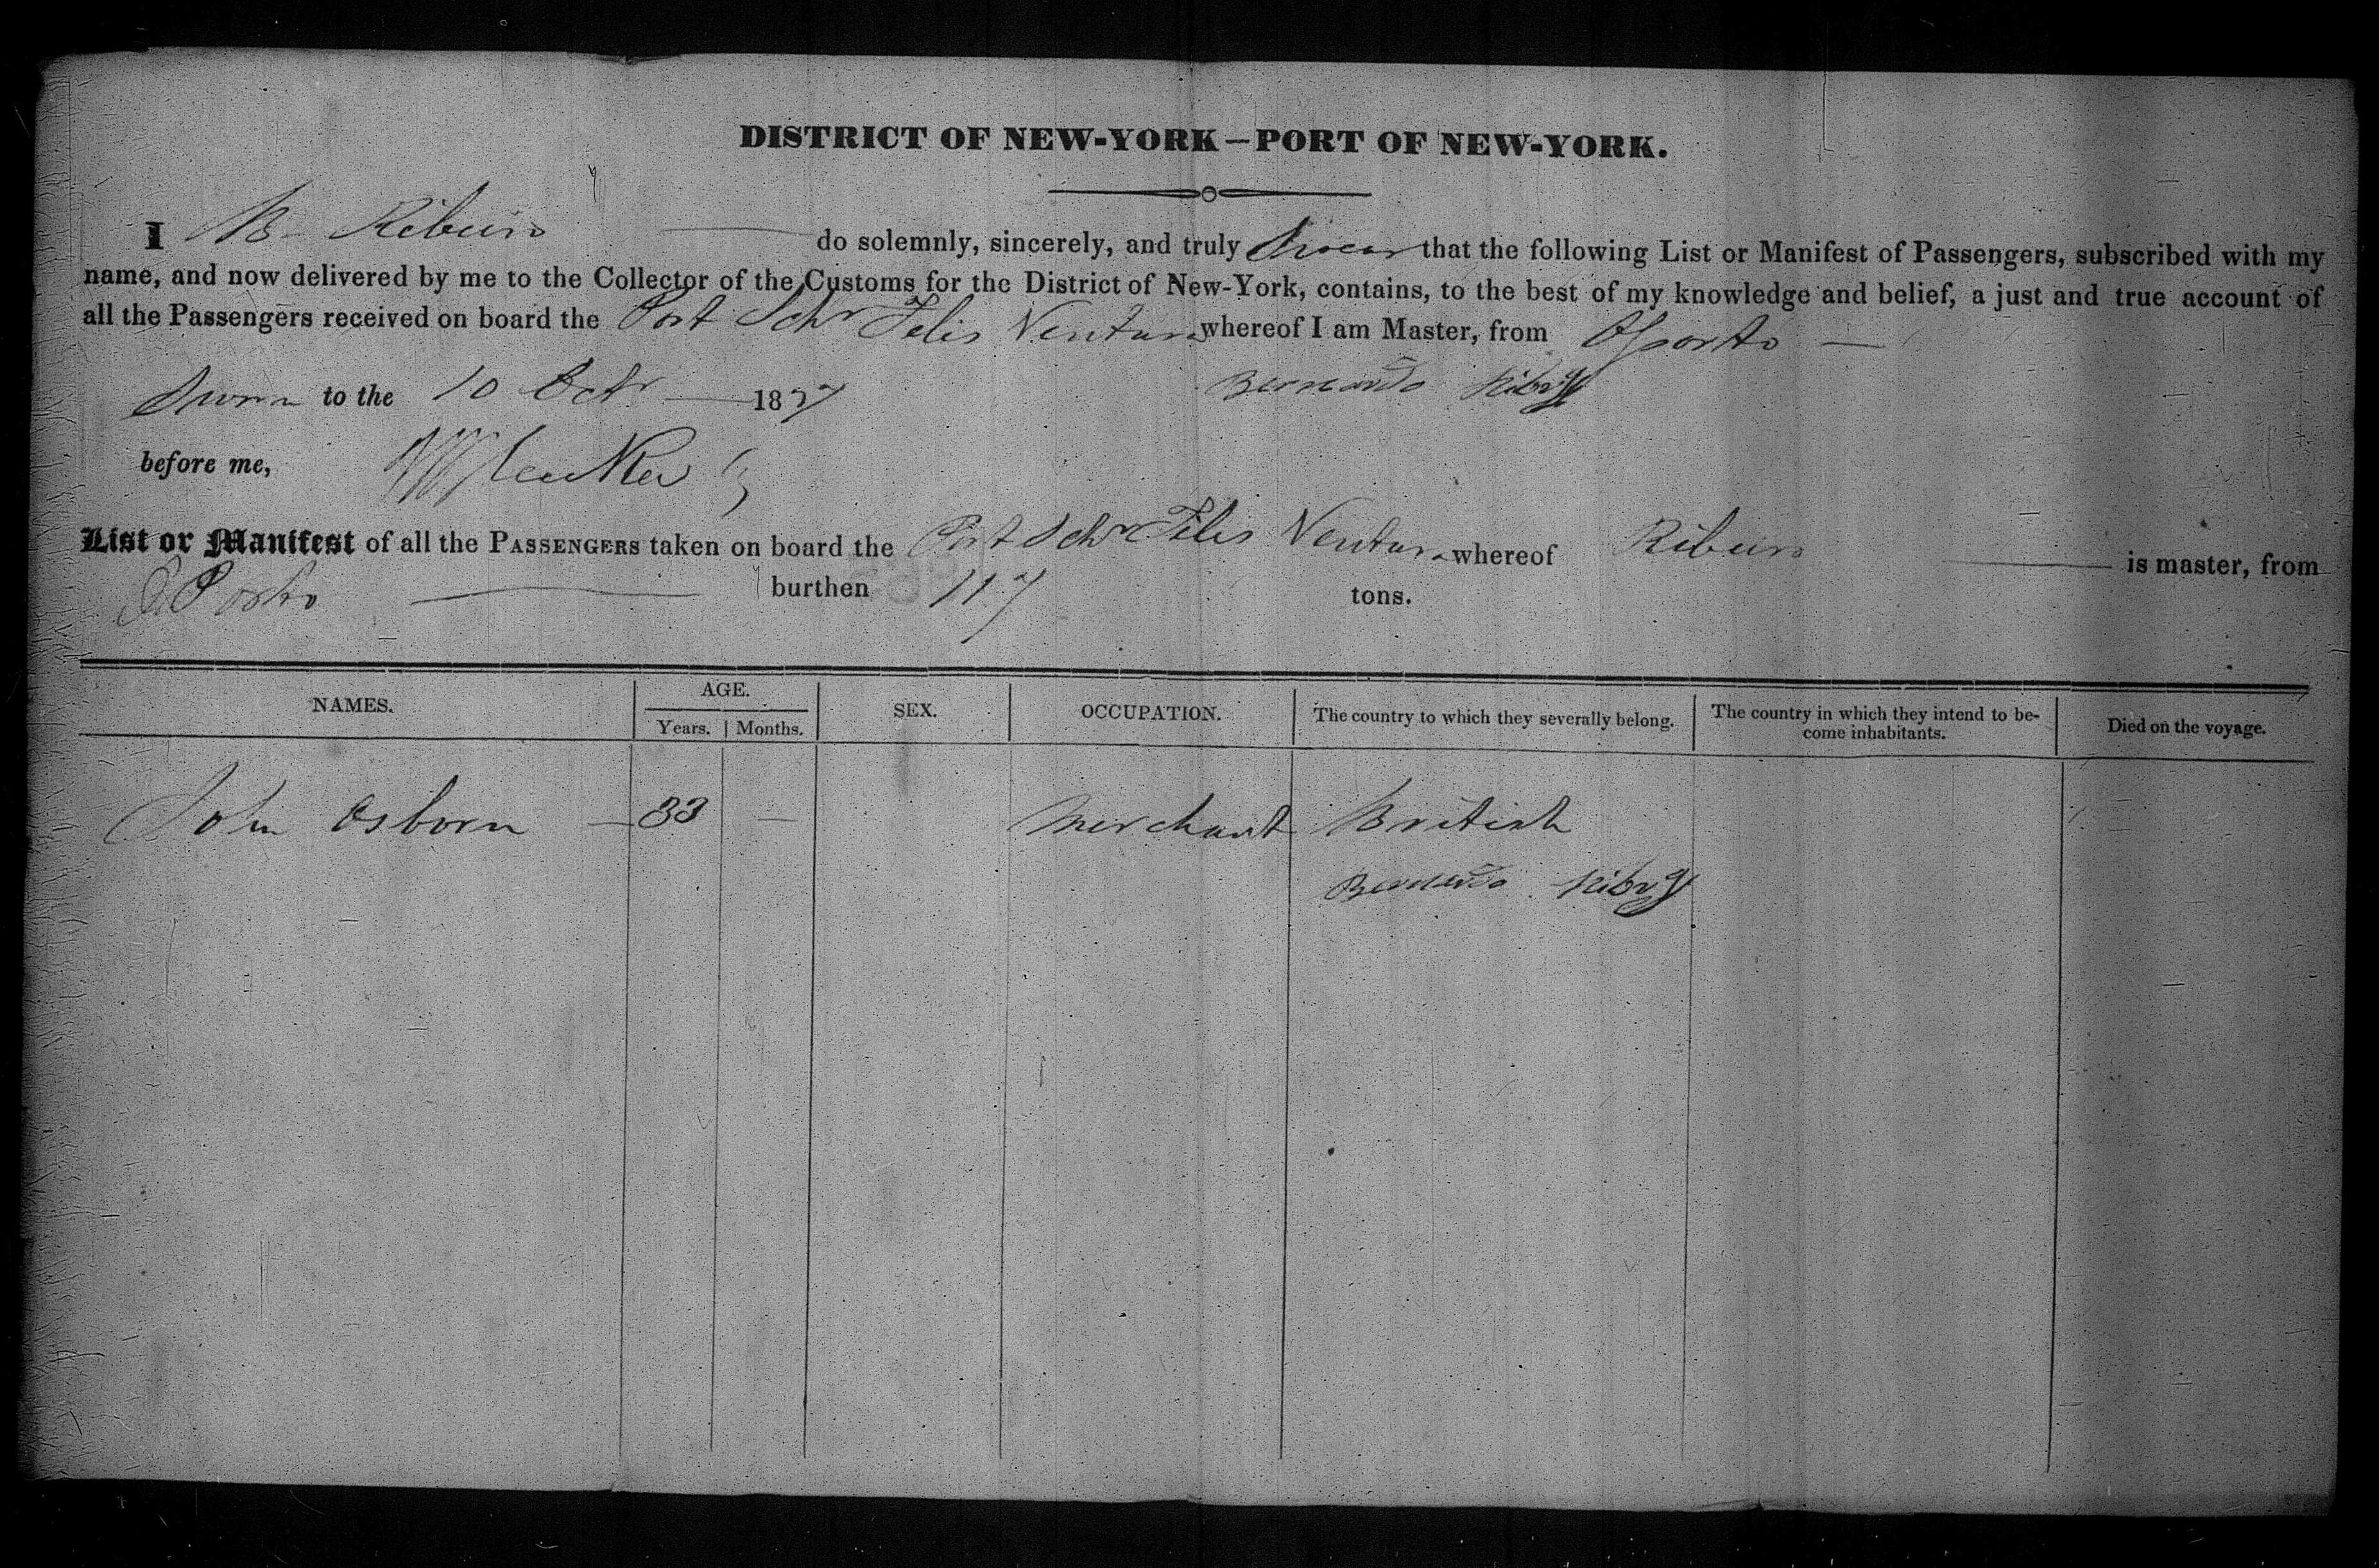 DISTRICT OF NEW-YORK—PORT OF NEW-YORK.
I B- Ribeiro do solemnly, sincerely, and truly Swear that the following List or Manifest of Passengers, subscribed with my
name, and now delivered by me to the Collector of the Customs for the District of New-York, contains, to the best of my knowledge and belief, a just and true account of
all the Passengers received on board the Port Schr Felis Ventura whereof I am Master, from Oporto —
Sworn to the 10 Octr 1837
Bernardo
before me,
List or Manifest of all the PASSENGERS taken on board the Port Schr Felis Ventura whereof Ribeiro is master, from
OPorto burthen 117 tons.
NAMES. AGE. SEX. OCCUPATION. The country to which they severally belong. The country in which they intend to be- come inhabitants. Died on the voyage.
Years. Months.
John Osborn — 33 — Merchant British
Bernardo